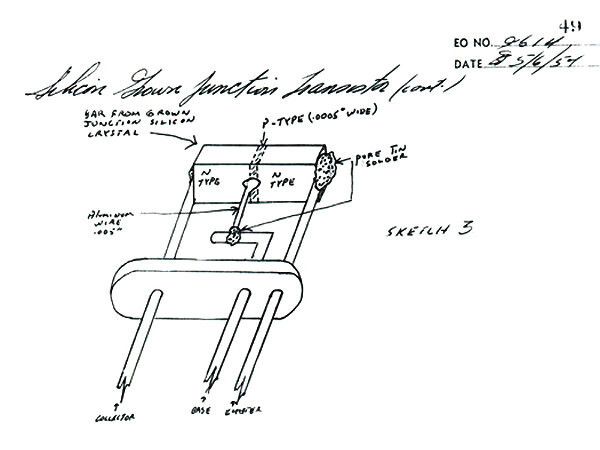 49
EO NO. 9614
DATE 5/6/54
Silicon Grown Junction Transistor (cont.)
BAR FROM GROWN
JUNCTION SILICON
CRYSTAL
P-TYPE (.0005" WIDE)
PURE TIN
SOLDER
N
TYPE
N
TYPE
ALUMINUM
WIRE
.005"
SKETCH 3
COLLECTOR
BASE
EMITTER